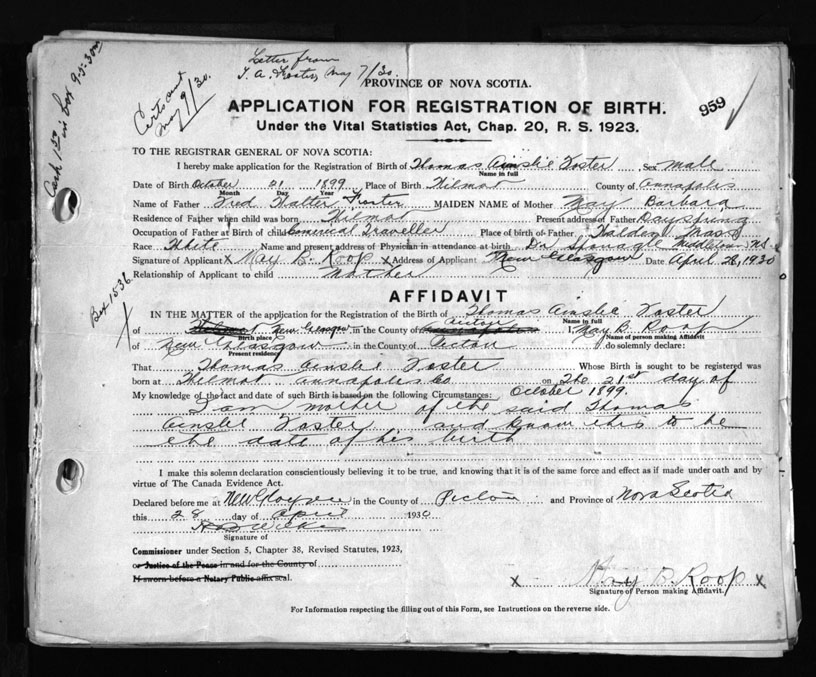 Letter from
T. A. Foster May 7/30.
Certs sent
May 9/30.
Cash 1.50 in box 9-5-30
PROVINCE OF NOVA SCOTIA.
959
APPLICATION FOR REGISTRATION OF BIRTH.
Under the Vital Statistics Act, Chap. 20, R. S. 1923.
TO THE REGISTRAR GENERAL OF NOVA SCOTIA:
I hereby make application for the Registration of Birth of Thomas Ainslie Foster, Sex Male
Name in full
Date of Birth October 21 1899 Place of Birth Wilmot County of Annapolis
Month Day Year
Name of Father Fred Walter Foster MAIDEN NAME of Mother May Barbara
Residence of Father when child was born, Wilmot Present address of Father Dayspring
Occupation of Father at Birth of child Comercial Traveller Place of birth of Father Malden Mass
Race White Name and present address of Physician in attendance at birth Dr Sponagle Middleton NS
Signature of Applicant X May B. Roop X Address of Applicant New Glasgow Date April 28, 1930
Relationship of Applicant to child Mother
Box 1536
AFFIDAVIT
IN THE MATTER of the application for the Registration of the Birth of Thomas Ainslie Foster
Name in full
of Wilmot New Glasgow in the County of Pictou I, May B. Roop
Birth place Name of Person making Affidavit
of New Glasgow in the County of Pictou do solemnly declare:
Present residence
That Thomas Ainslie Foster Whose Birth is sought to be registered was
born at Wilmot Annapolis Co on The 21st day of
My knowledge of the fact and date of such Birth is based on the following Circumstances: October 1899
I am mother of the said Thomas
Ainslie Foster and know this to be
the date of his birth
I make this solemn declaration conscientiously believing it to be true, and knowing that it is of the same force and effect as if made under oath and by
virtue of The Canada Evidence Act.
Declared before me at New Glasgow in the County of Pictou and Province of Nova Scotia
this 28 day of April 1930
Signature of
Commissioner under Section 5, Chapter 38, Revised Statutes, 1923,
or Justice of the Peace in and for the County of
If sworn before a Notary Public affix seal.
X May B. Roop X
Signature of Person making Affidavit.
For Information respecting the filling out of this Form, see Instructions on the reverse side.